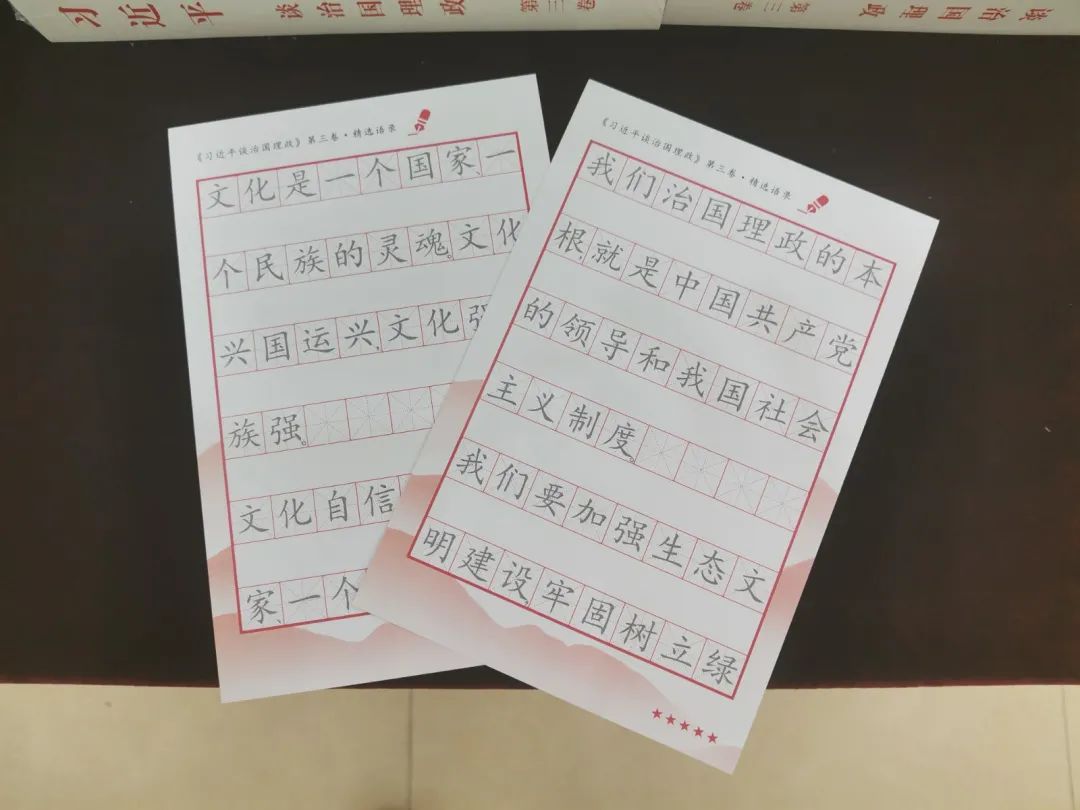 习近平 谈治国理政 第三卷
谈治国理政 第三卷
《习近平谈治国理政》第三卷·精选语录
文化是一个国家、一
个民族的灵魂。文化
兴国运兴,文化强
族强。
文化自信
家、一个
《习近平谈治国理政》第三卷·精选语录
我们治国理政的本
根,就是中国共产党
的领导和我国社会
主义制度。
我们要加强生态文
明建设,牢固树立绿